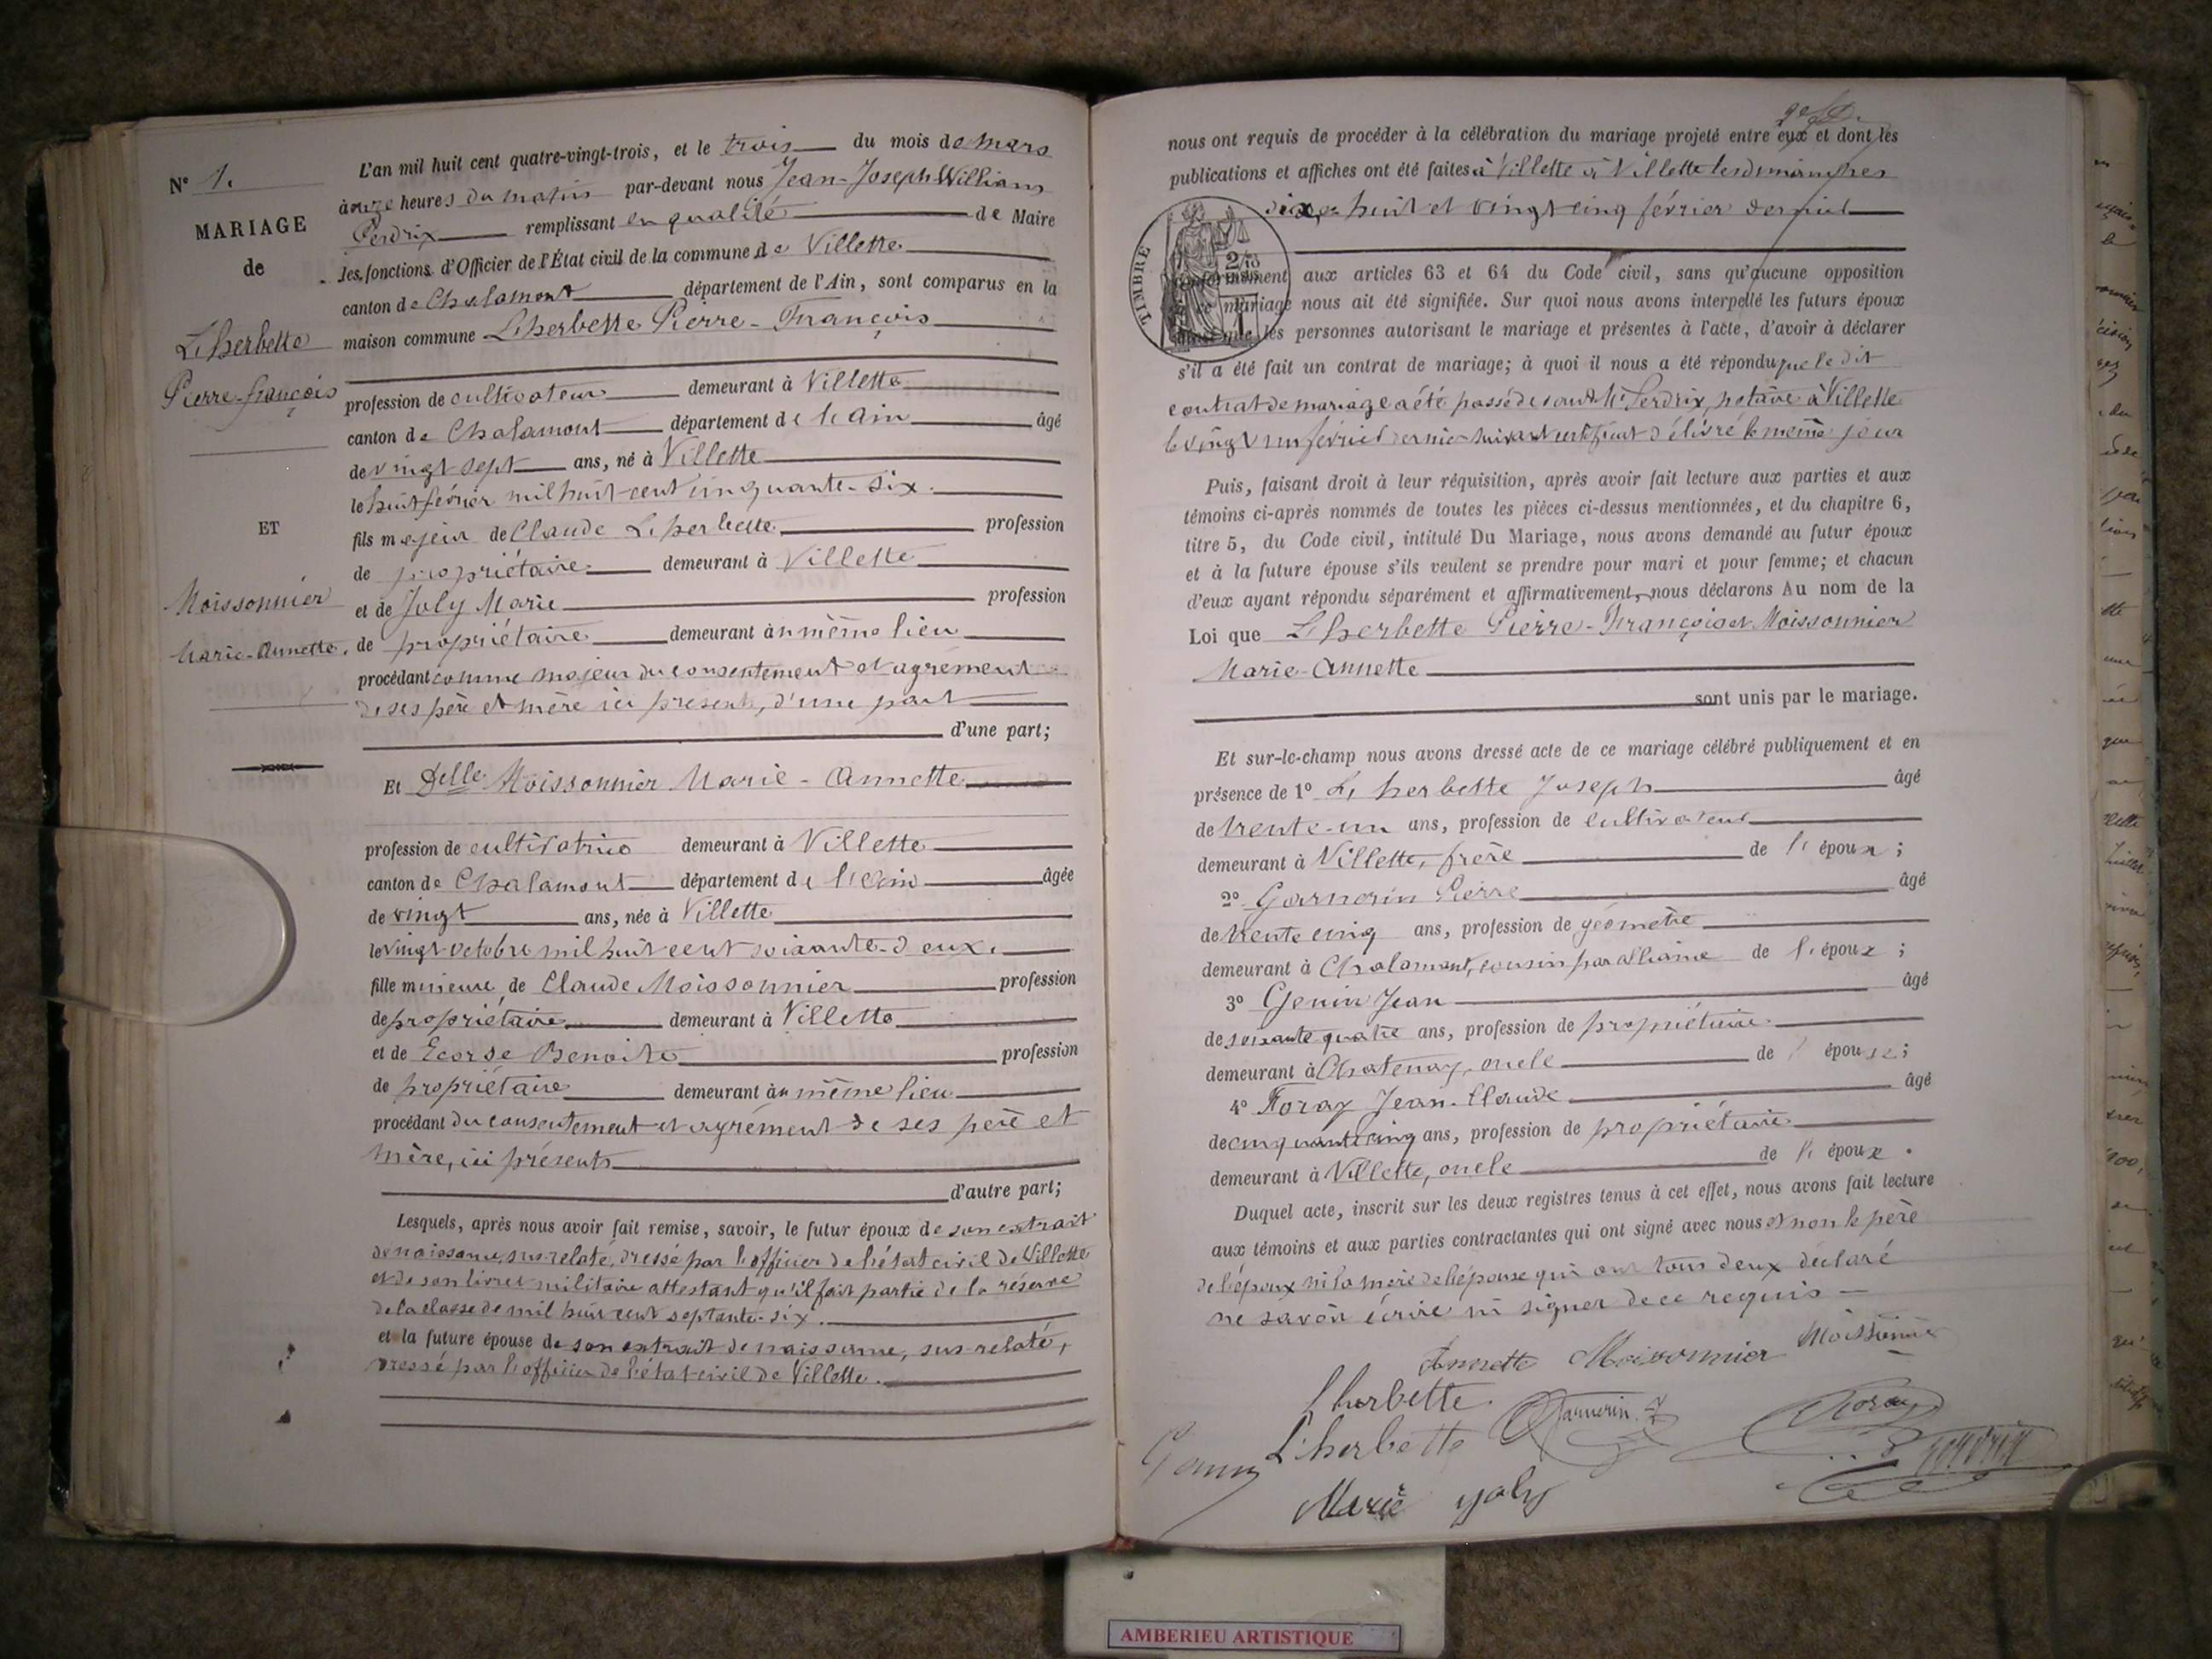 N° 1.
MARIAGE
de
L'herbette
Pierre-françois
ET
Moissonnier
Marie-Annette.
L'an mil huit cent quatre-vingt-trois, et le trois du mois de mars
à onze heures du matin par-devant nous Jean-Joseph William
Perdrix remplissant en qualité de Maire
les fonctions d'Officier de l'État civil de la commune de Villette
canton de Chalamont département de l'Ain, sont comparus en la
maison commune L'herbette Pierre-François
profession de cultivateur demeurant à Villette
canton de Chalamont département de l'ain âgé
de vingt sept ans, né à Villette
le huit février mil huit cent cinquante-six.
fils majeur de Claude L'herbette profession
de propriétaire demeurant à Villette
et de Joly Marie profession
de propriétaire demeurant au même lieu
procédant comme majeur du consentement et agrément
de ses père et mère ici présents, d'une part
d'une part;
Et Delle Moissonnier Marie-Annette
profession de cultivatrice demeurant à Villette
canton de Chalamont département de l'ain âgée
de vingt ans, née à Villette
le vingt octobre mil huit cent soixante-deux.
fille mineure de Claude Moissonnier profession
de propriétaire demeurant à Villette
et de Ecorse Benoite profession
de propriétaire demeurant au même lieu
procédant du consentement et agrément de ses père et
mère, ici présents
d'autre part;
Lesquels, après nous avoir fait remise, savoir, le futur époux de son extrait
de naissance, sus-relaté, dressé par l'officier de l'état civil de Villette
et de son livret militaire attestant qu'il fait partie de la réserve
de la classe de mil huit cent septante-six.
et la future épouse de son extrait de naissance, sus-relaté,
dressé par l'officier de l'état-civil de Villette.
nous ont requis de procéder à la célébration du mariage projeté entre eux et dont les
publications et affiches ont été faites à Villette à Villette les dimanches
dix-huit et vingt cinq février dernier
TIMBRE
aux articles 63 et 64 du Code civil, sans qu'aucune opposition
mariage nous ait été signifiée. Sur quoi nous avons interpellé les futurs époux
les personnes autorisant le mariage et présentes à l'acte, d'avoir à déclarer
s'il a été fait un contrat de mariage; à quoi il nous a été répondu que le dit
contrat de mariage a été passé devant Me Perdrix, notaire à Villette
le vingt un février dernier suivant certificat délivré le même jour
Puis, faisant droit à leur réquisition, après avoir fait lecture aux parties et aux
témoins ci-après nommés de toutes les pièces ci-dessus mentionnées, et du chapitre 6,
titre 5, du Code civil, intitulé Du Mariage, nous avons demandé au futur époux
et à la future épouse s'ils veulent se prendre pour mari et pour femme; et chacun
d'eux ayant répondu séparément et affirmativement, nous déclarons Au nom de la
Loi que L'herbette Pierre-François et Moissonnier
Marie-Annette
sont unis par le mariage.
Et sur-le-champ nous avons dressé acte de ce mariage célébré publiquement et en
présence de 1° L'herbette Joseph âgé
de trente-un ans, profession de cultivateur
demeurant à Villette, frère de l'époux;
2° Garnerin Pierre âgé
de trente cinq ans, profession de géomètre
demeurant à Chalamont, cousin par alliance de l'époux;
3° Genin Jean âgé
de soixante quatre ans, profession de propriétaire
demeurant à Chatenay, oncle de l'épouse;
4° Foray Jean-Claude âgé
de cinquante cinq ans, profession de propriétaire
demeurant à Villette, oncle de l'époux.
Duquel acte, inscrit sur les deux registres tenus à cet effet, nous avons fait lecture
aux témoins et aux parties contractantes qui ont signé avec nous et non le père
de l'époux ni la mère de l'épouse qui ont tous deux déclaré
ne savoir écrire ni signer de ce requis
Annette Moissonnier Moissonnier
Lherbette
L'herbette Garnerin Foray
Genin Perdrix
Marie Joly
AMBERIEU ARTISTIQUE